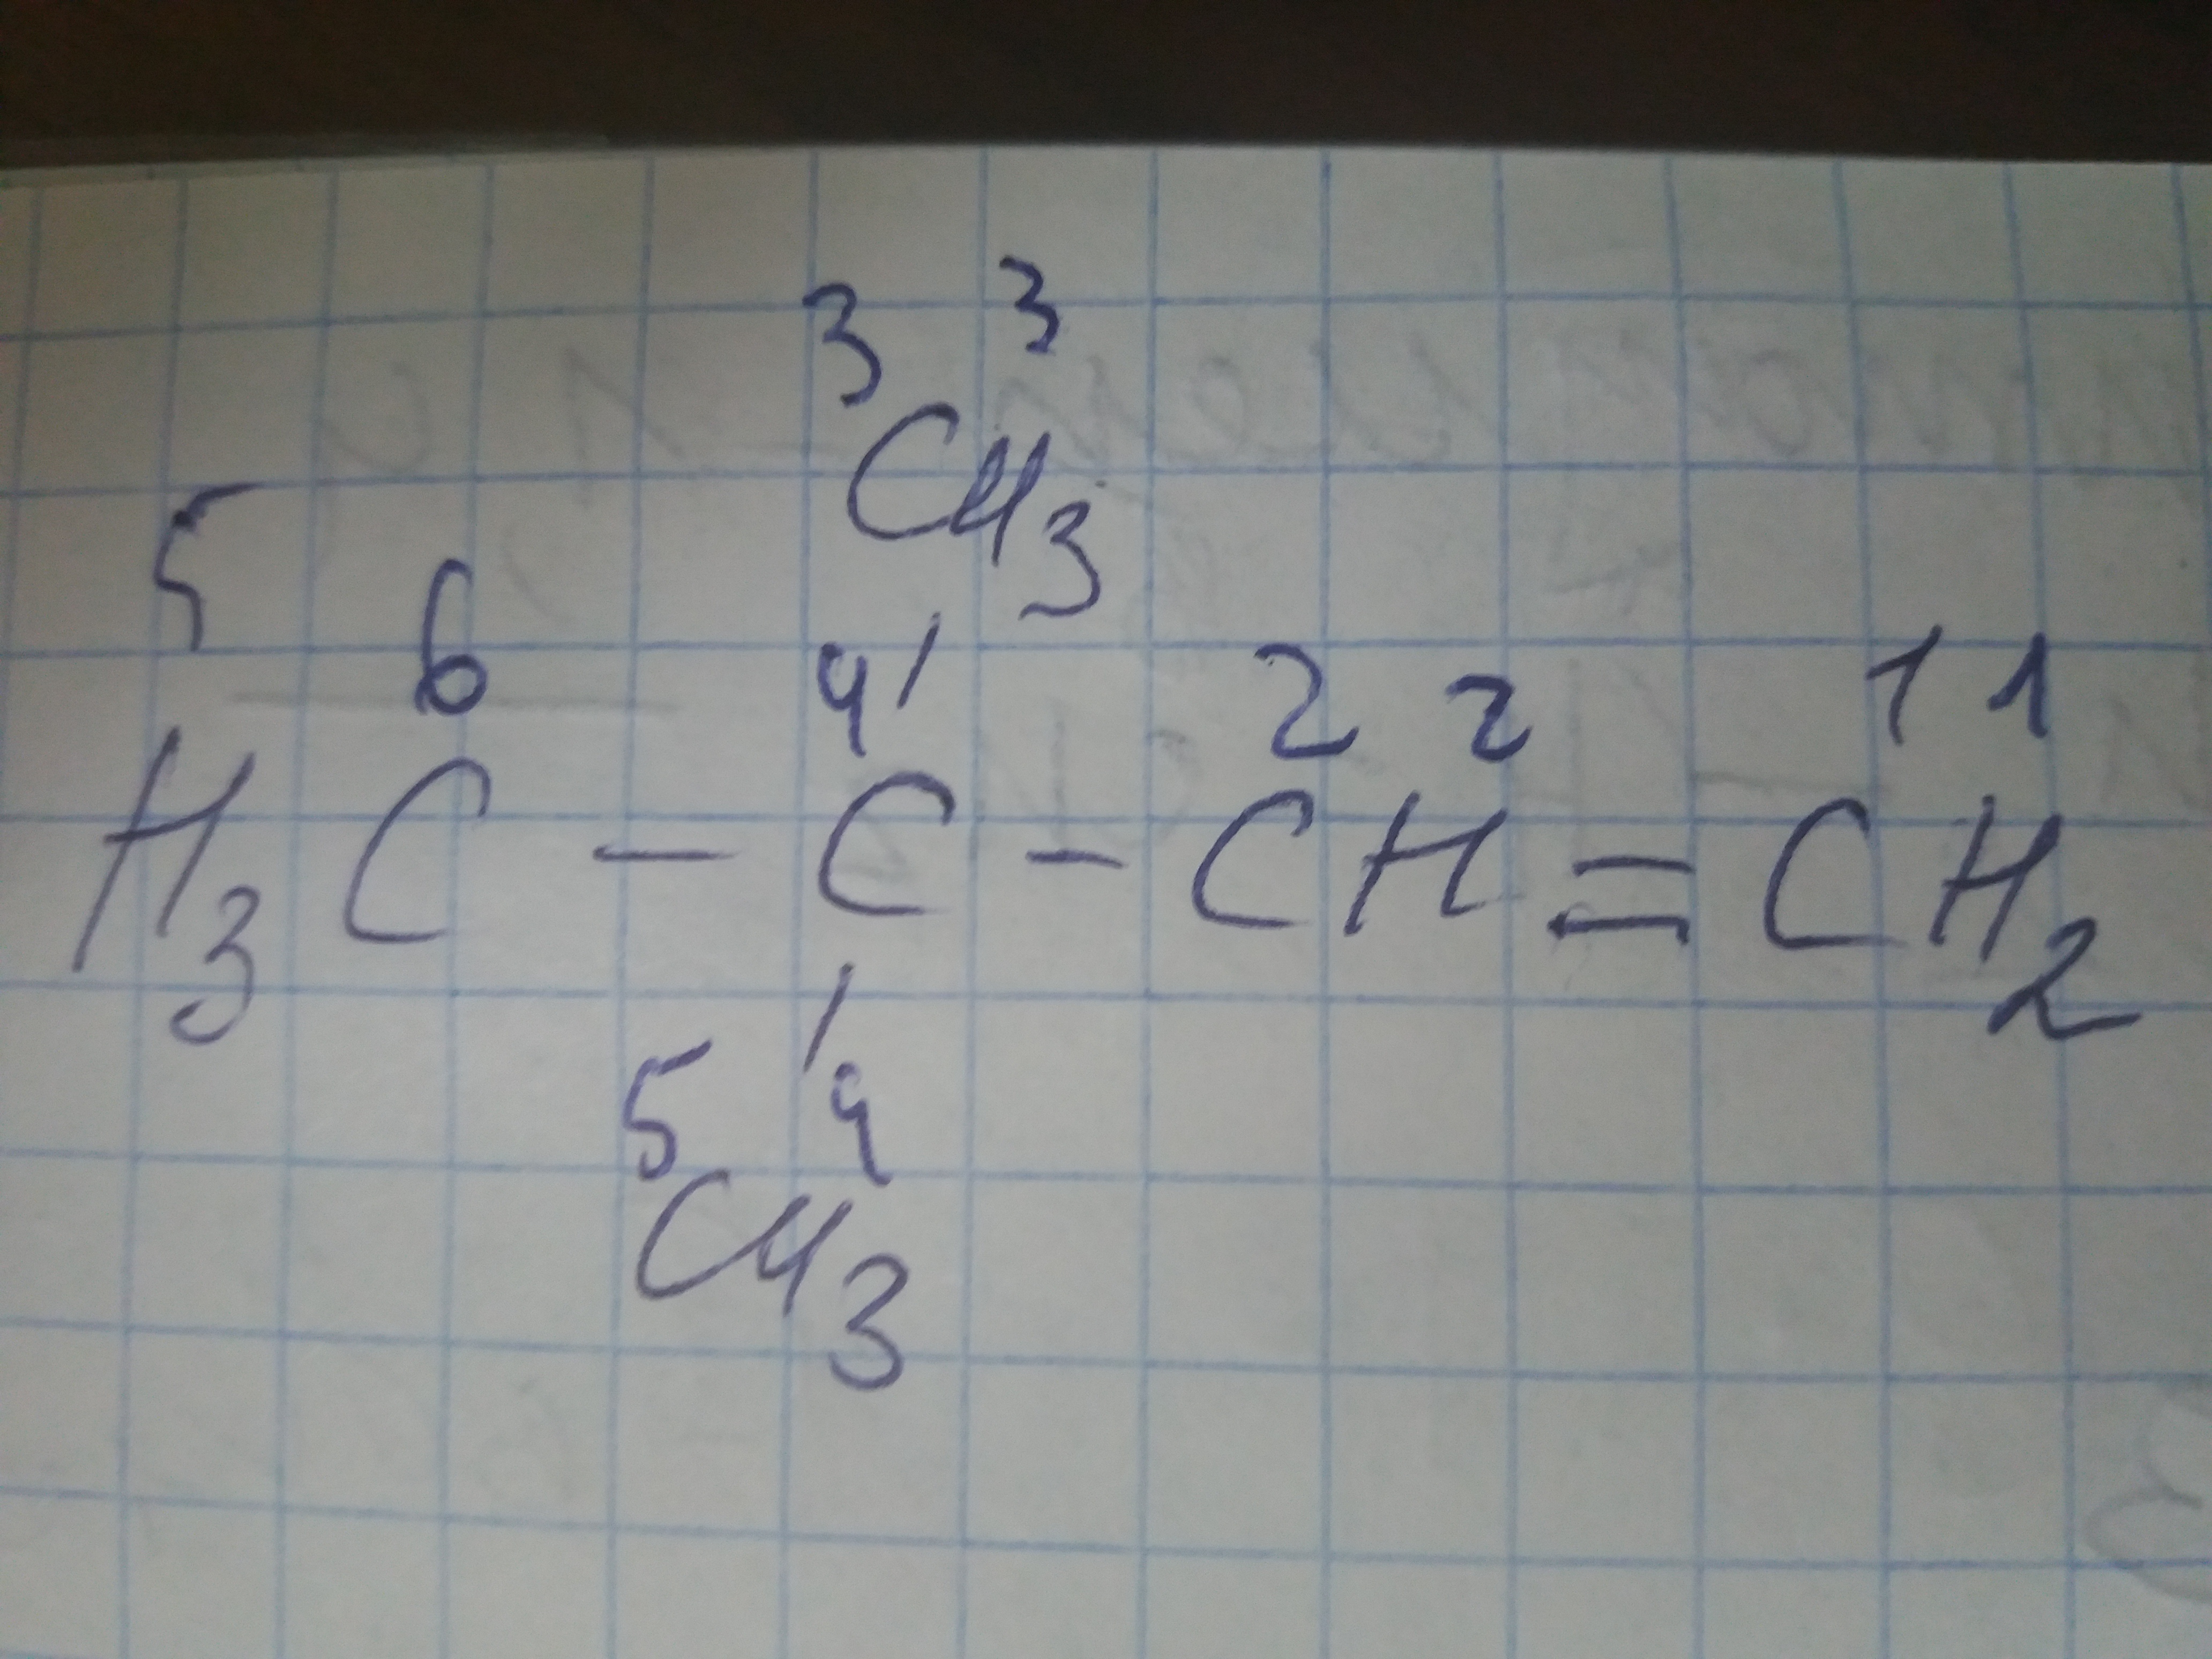 3 3
CH3
5 6 4 2 2 1 1
H3C - C - CH = CH2
5 4
CH3